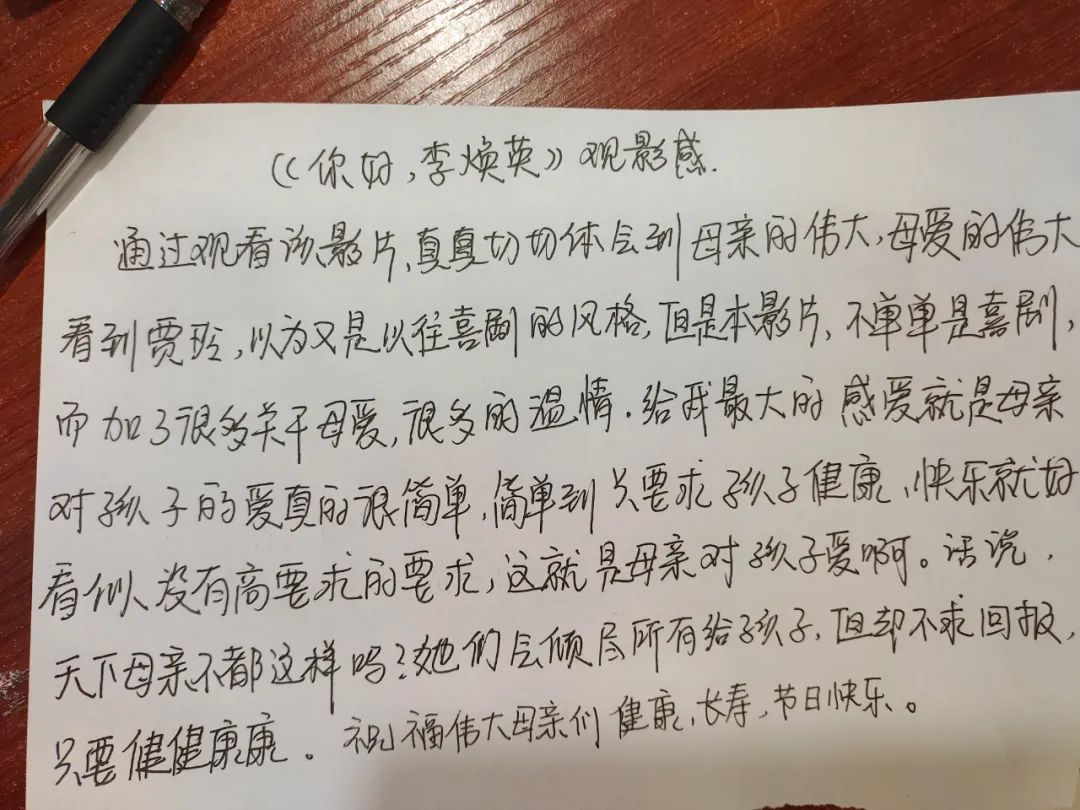 《你好,李焕英》观影感.
通过观看该影片,真真切切体会到母亲的伟大,母爱的伟大
看到贾玲,以为又是以往喜剧的风格,但是本影片,不单单是喜剧,
而加了很多关于母爱,很多的温情.给我最大的感爱就是母亲
对孩子的爱真的很简单,简单到只要求孩子健康、快乐就好
看似没有高要求的要求,这就是母亲对孩子爱啊。话说,
天下母亲不都这样吗?她们会倾尽所有给孩子,但却不求回报,
只要健健康康。祝福伟大母亲们健康、长寿,节日快乐。